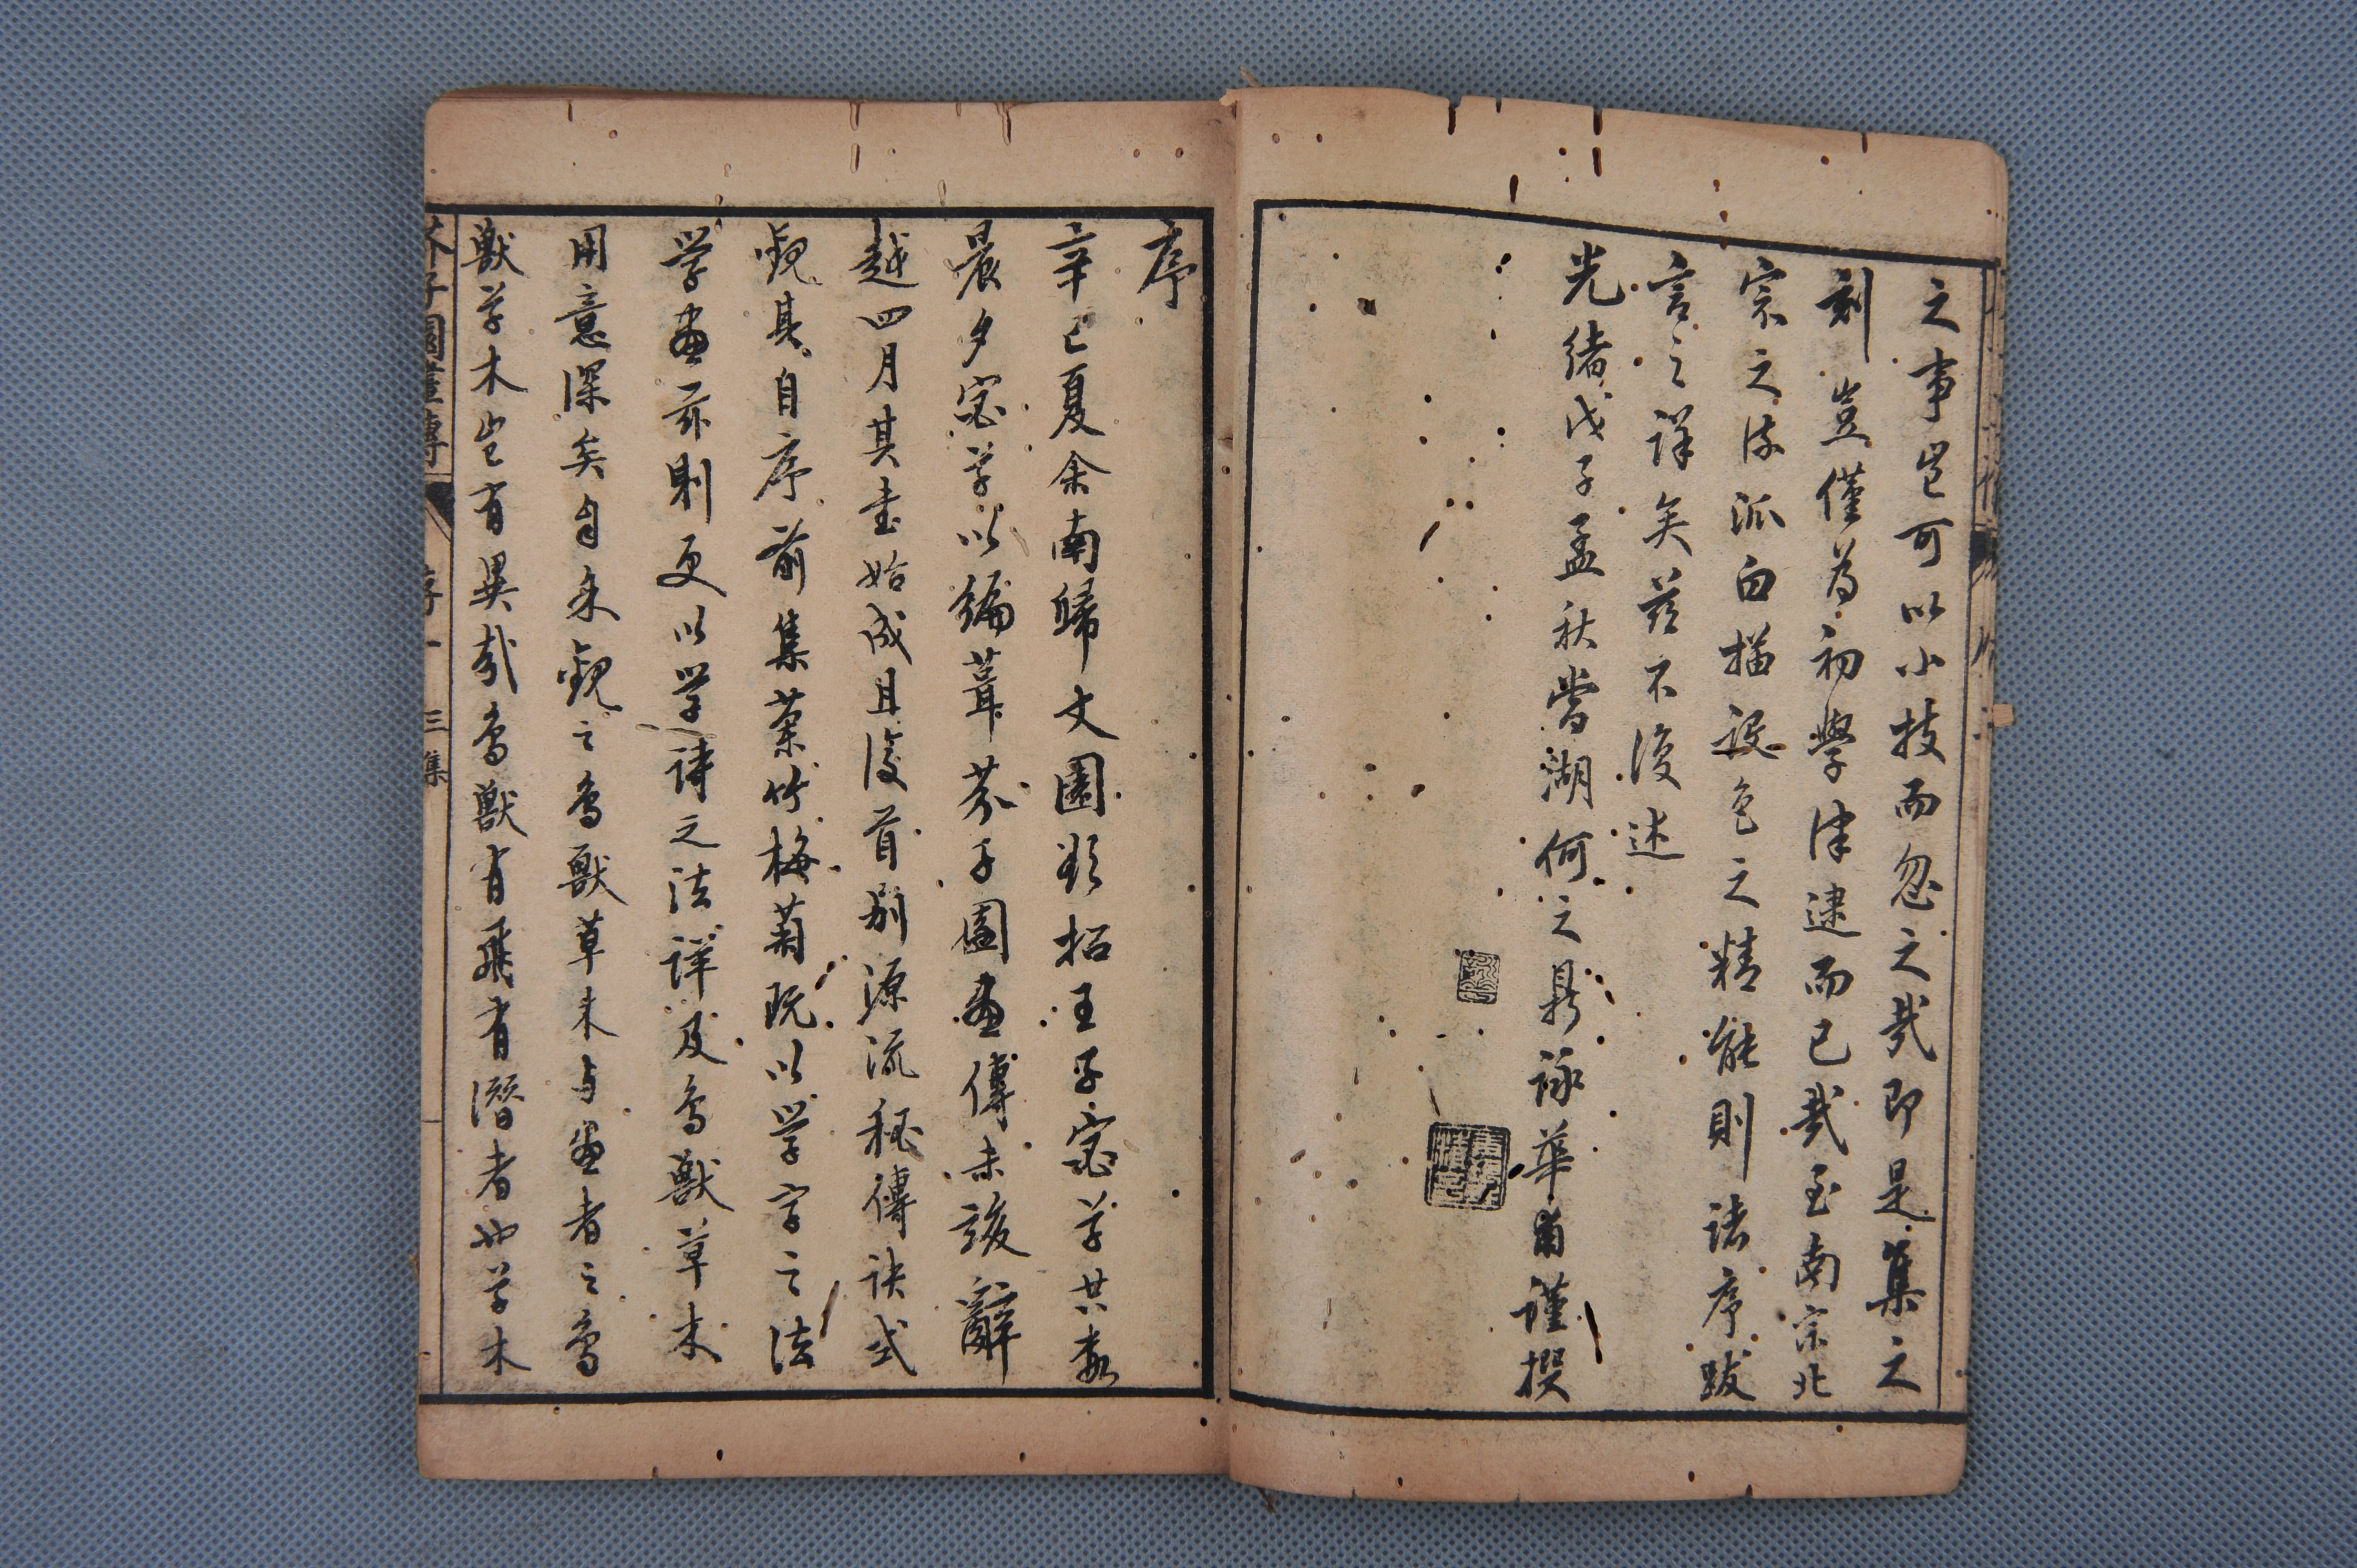 之事豈可以小技而忽之哉即是集之
刻豈僅為初學津逮而已哉至南宗北
宗之流派白描設色之精能則諸序跋
言之詳矣茲不復述
光緒戊子孟秋當湖何之鼎詠華甫謹撰
序
辛巳夏余南歸文園欣招王子宓草共數
晨夕宓草以編葺芥子園畫傳未竣辭
越四月其書始成且後首別源流秘傳訣式
觀其自序前集蘭竹梅菊既以学字之法
学畫示則更以学詩之法詳及鳥獸草木
用意深矣自余觀之鳥獸草木与畫者之鳥
獸草木豈有異哉鳥獸有飛有潛者也草木
芥子園畫傳 序 一 三集